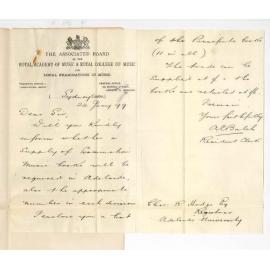 THE ASSOCIATED BOARD
OF THE
ROYAL ACADEMY OF MUSIC & ROYAL COLLEGE OF MUSIC
FOR
LOCAL EXAMINATIONS IN MUSIC.
Sydney
Dear Sir,
Will you kindly
inform whether a
supply of Examination
Music books will be
required in Adelaide,
also the approximate
number in each division
I enclose you a list
of the Pianoforte books
(10 in all)
The books can be
supplied at
books are retailed at
Yours faithfully
Resident Clerk
Chas. R. Hodge Esq
Registrar
Adelaide University